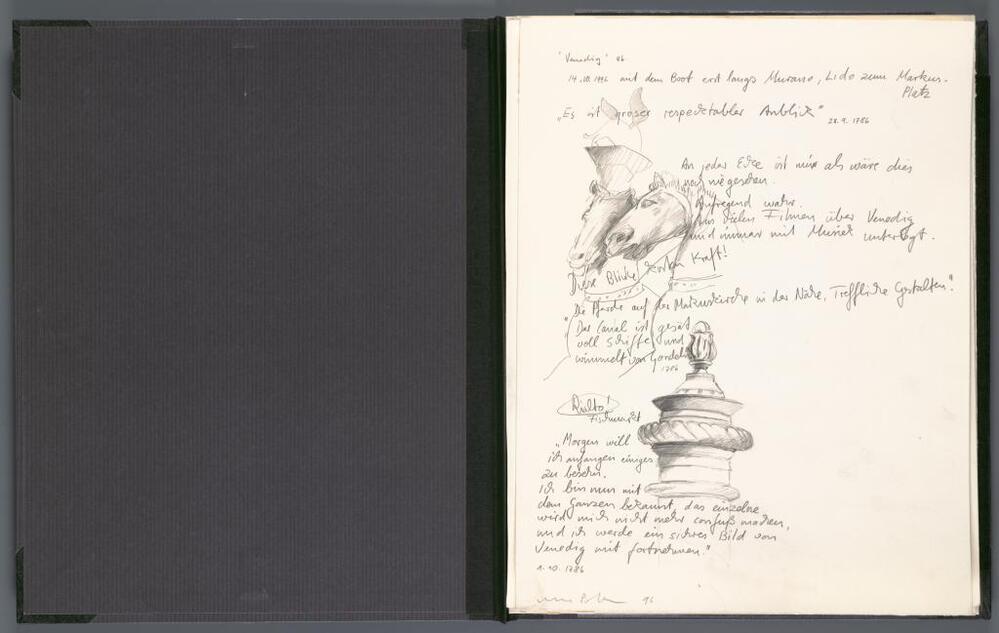 "Venedig" 96
14.VII.1996 mit dem Boot erst langs Murano, Lido zum Markus-
Platz
„Es ist groser respecktabler Anblick"
28.9.1786
An jeder Ecke ist mir als wäre dies
noch nie gesehen.
Aufregend wahr.
Aus vielen Filmen über Venedig
und immer mit Musick unterlegt.
Diese Blicke Kraft!
„Die Pferde auf der Markuskirche in der Nähe, Treffliche Gestalten"
„Der Canal ist gesät
voll Schiffe und
wimmelt von Gondeln
1786
Rialto!
Fischmarkt
„Morgen will
ich anfangen einiges
zu besehn.
Ich bin nun mit
dem Ganzen bekannt, das einzelne
wird mich nicht mehr confuß machen,
und ich werde ein sichres Bild von
Venedig mit fortnehmen."
1.10.1786
96